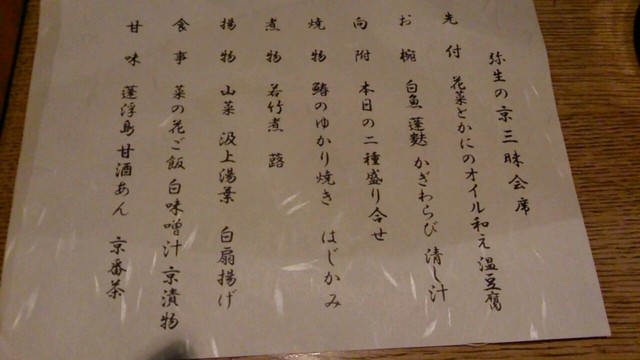 弥生の京三昧会席
先付 花菜とかにのオイル和え 温豆腐
お椀 白魚 蓬麩 かぎわらび 清し汁
向附 本日の二種盛り合せ
焼物 鰆のゆかり焼き はじかみ
煮物 若竹煮 蕗
揚物 山菜 汲上湯葉 白扇揚げ
食事 菜の花ご飯 白味噌汁 京漬物
甘味 蓬浮島 甘酒あん 京番茶